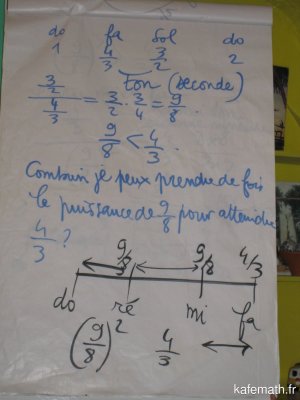 do fa sol do
1 4/3 3/2 2
ton (seconde)
3/2 / 4/3 = 3/2 . 3/4 = 9/8
9/8 < 4/3 .
Combien je peux prendre de fois
la puissance de 9/8 pour atteindre
4/3 ?
9/8 9/8 4/3
do ré mi fa
(9/8)² 4/3
kafemath.fr